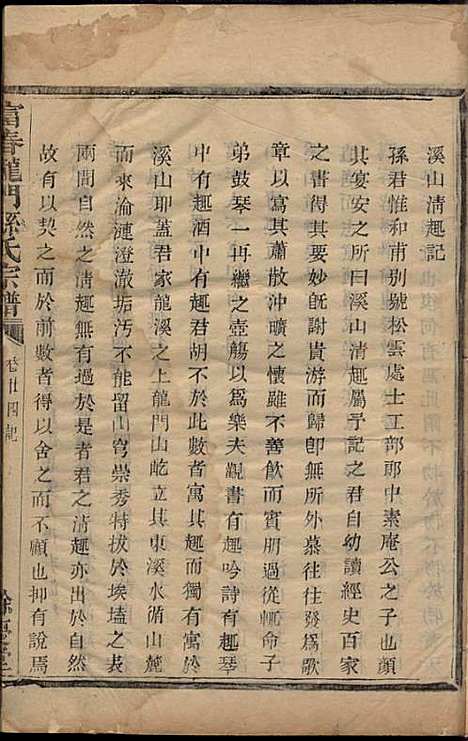 溪山清趣記
孫君惟和甫別號松雲處士工部郎中素庵公之子也顏
其宴安之所曰溪山清趣屬予記之君自幼讀經史百家
之書得其要妙旣謝貴游而歸卽無所外慕往往發爲歌
章以寫其蕭散沖曠之懷雖不善飲而賓朋過從輒命子
弟鼓琴一再繼之壺觴以爲樂夫觀書有趣吟詩有趣琴
中有趣酒中有趣君胡不於此數者寓其趣而獨有寓於
溪山耶蓋君家龍溪之上龍門山屹立其東溪水循山麓
而來淪漣澄澈垢汚不能留山穹崇秀特拔於埃壒之表
兩間自然之清趣無有過於是者君之清趣亦出於自然
故有以契之而於前數者得以舍之而不顧也抑有說焉
富春龍門孫氏宗譜 卷廿四記
餘慶堂